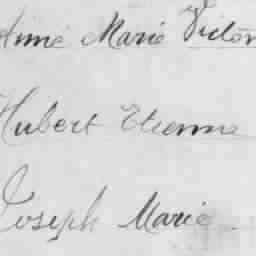 Anne Marie Victor
Hubert Etienne
Joseph Marie